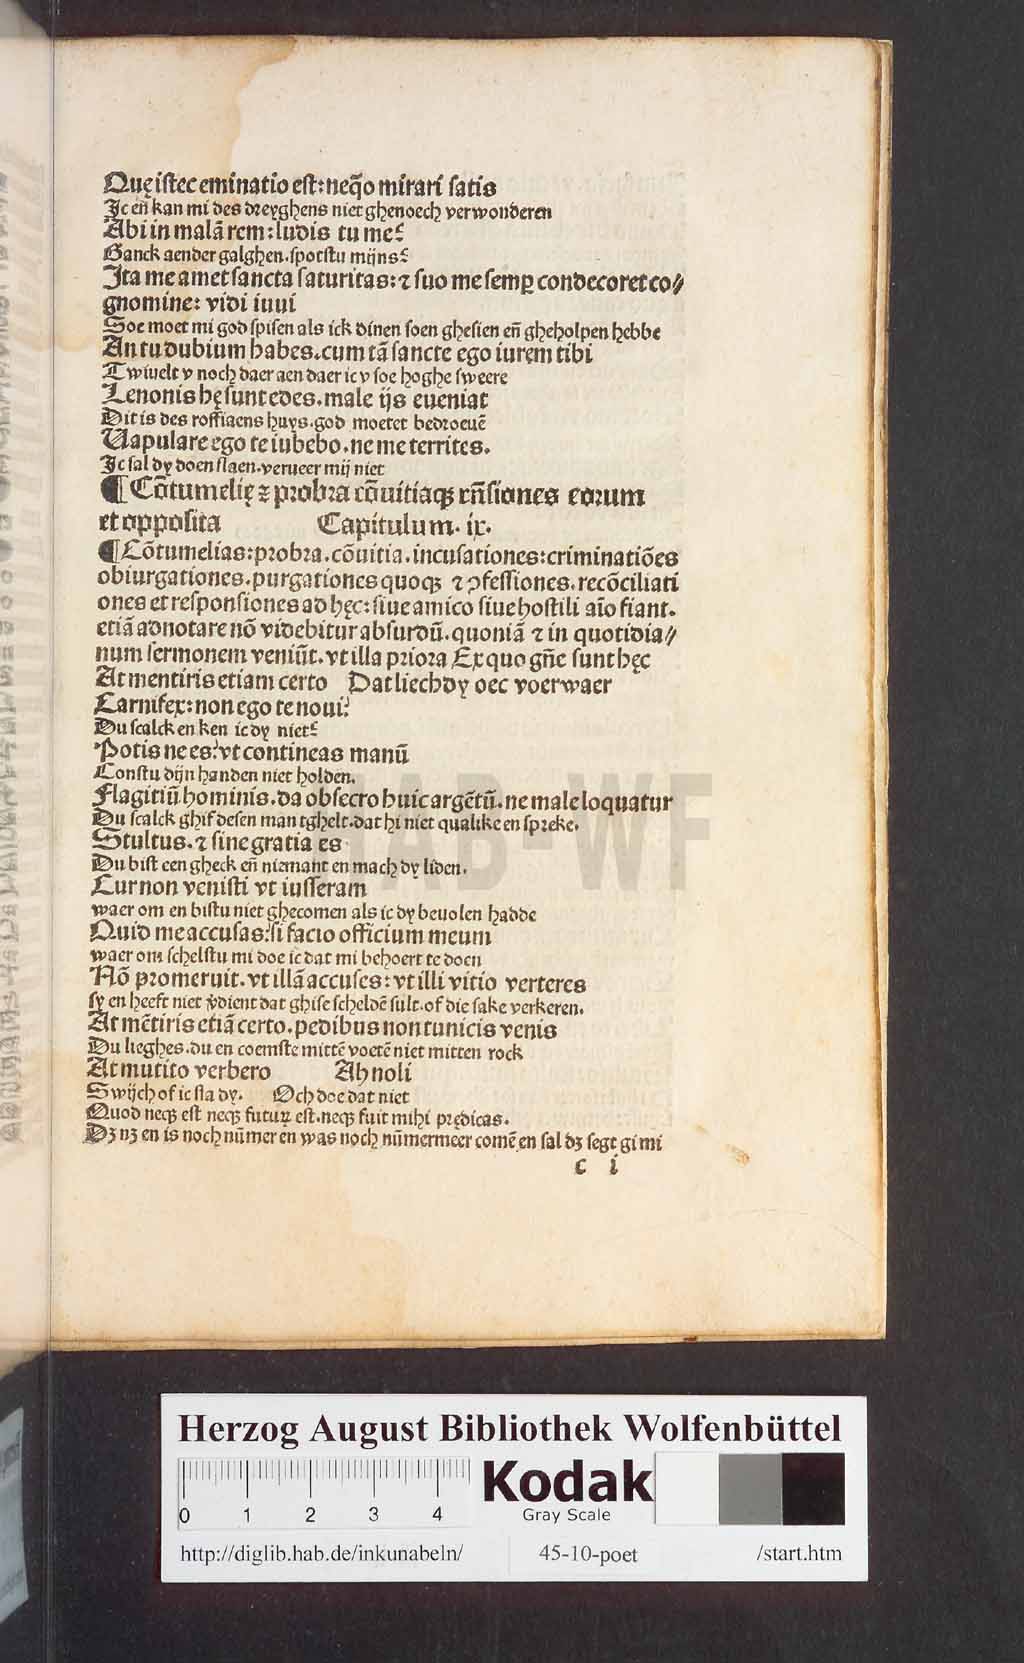 Quę istec eminatio est: neq̃o mirari satis
Jc eñ kan mi des dreyghens niet ghenoech verwonderen
Abi in malã rem: ludis tu me?
Ganck aender galghen. spotstu mijns?
Ita me amet sancta saturitas: ⁊ suo me semꝑ condecoret co⸗
gnomine: vidi iuui
Soe moet mi god spisen als ick dinen soen ghesien eñ gheholpen hebbe
An tu dubium habes. cum tã sancte ego iurem tibi
Twiuelt v noch daer aen daer ic v soe hoghe sweere
Lenonis hę sunt edes. male ijs eueniat
Dit is des roffiaens huys. god moetet bedroeuẽ
Uapulare ego te iubebo. ne me territes.
Jc sal dy doen slaen. verueer mij niet
¶ Cõtumelię ⁊ probra cõuitiaqꝫ rñsiones eorum
et opposita Capitulum. ix.
¶ Cõtumelias: probra. cõuitia. incusationes: criminatiões
obiurgationes. purgationes quoqꝫ ⁊ ꝯfessiones. recõciliati
ones et responsiones ad hęc: siue amico siue hostili aĩo fiant.
etiã adnotare nõ videbitur absurdũ. quoniã ⁊ in quotidia⸗
num sermonem veniũt. vt illa priora Ex quo gñe sunt hęc
At mentiris etiam certo Dat liech dy oec voerwaer
Carnifex: non ego te noui?
Du scalck en ken ic dy niet?
Potis ne es? vt contineas manũ
Constu dijn handen niet holden.
Flagitiũ hominis. da obsecro huic argẽtũ. ne male loquatur
Du scalck ghif desen man tghelt. dat hi niet qualike en spreke.
Stultus. ⁊ sine gratia es
Du bist een gheck eñ niemant en mach dy liden.
Cur non venisti vt iusseram
waer om en bistu niet ghecomen als ic dy beuolen hadde
Quid me accusas? si facio officium meum
waer om schelstu mi doe ic dat mi behoert te doen
Nõ promeruit. vt illã accuses: vt illi vitio verteres
sy en heeft niet v̾dient dat ghise scheldẽ sult. of die sake verkeren.
At mẽtiris etiã certo. pedibus non tunicis venis
Du lieghes. du en coemste mittẽ voetẽ niet mitten rock
At mutito verbero Ah noli
Swijch of ic sla dy. Och doe dat niet
Quod neqꝫ est neqꝫ futuꝝ est. neqꝫ fuit mihi prędicas.
Dꝫ nꝫ en is noch nũmer en was noch nũmermeer comẽ en sal dꝫ segt gi mi
c i
HAB-WF
Herzog August Bibliothek Wolfenbüttel
0 1 2 3 4
Kodak
Gray Scale
http://diglib.hab.de/inkunabeln/ 45-10-poet /start.htm